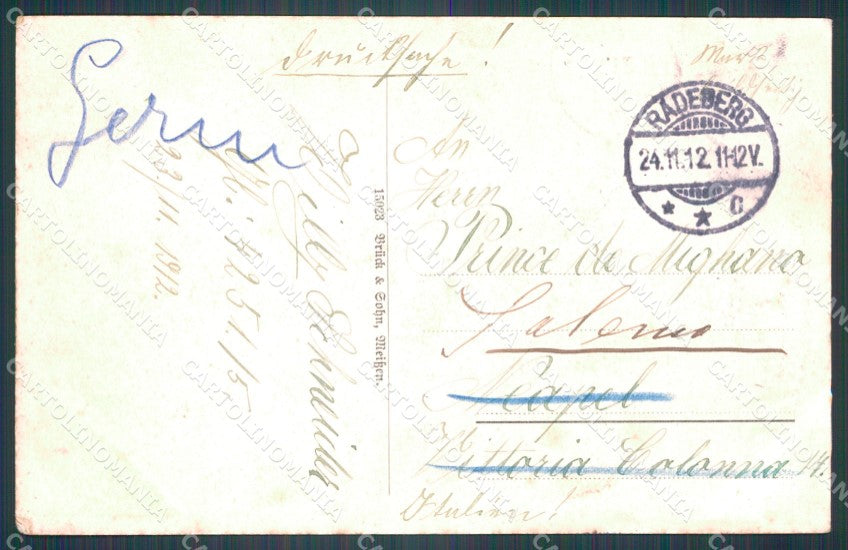 Drucksache!
RADEBERG
24.11.12. 11-12V.
* * C
An
Herrn
Prince de Mignano
Salerno
Neapel
Vittoria Colonna 14.
Italien!
15023 Brück & Sohn, Meißen.
Germ
Willy Schneider
4251/5
23/11. 1912.
CARTOLINOMANIA